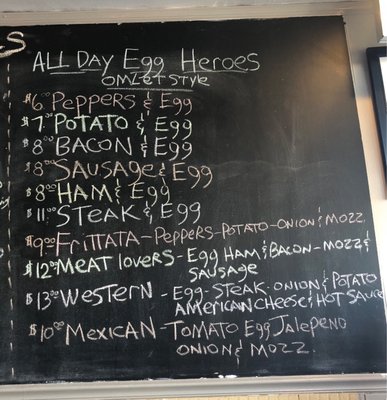 S
ALL DAY Egg Heroes
OMLET STYLE
$6⁰⁰ PEPPERS & Egg
$7⁰⁰ POTATO & Egg
$8⁰⁰ BACON & Egg
$8⁰⁰ SAUSAGE & Egg
$8⁰⁰ HAM & Egg
$11⁰⁰ STEAK & Egg
$9⁰⁰ FRITTATA - PEPPERS - POTATO - ONION & MOZZ.
$12⁰⁰ MEAT LOVERS - Egg HAM & BACON - MOZZ &
SAUSAGE
$13⁰⁰ WESTERN - Egg - STEAK - ONION & POTATO
AMERICAN CHEESE & HOT SAUCE
$10⁰⁰ MEXICAN - TOMATO Egg JALEPENO
ONION & MOZZ.